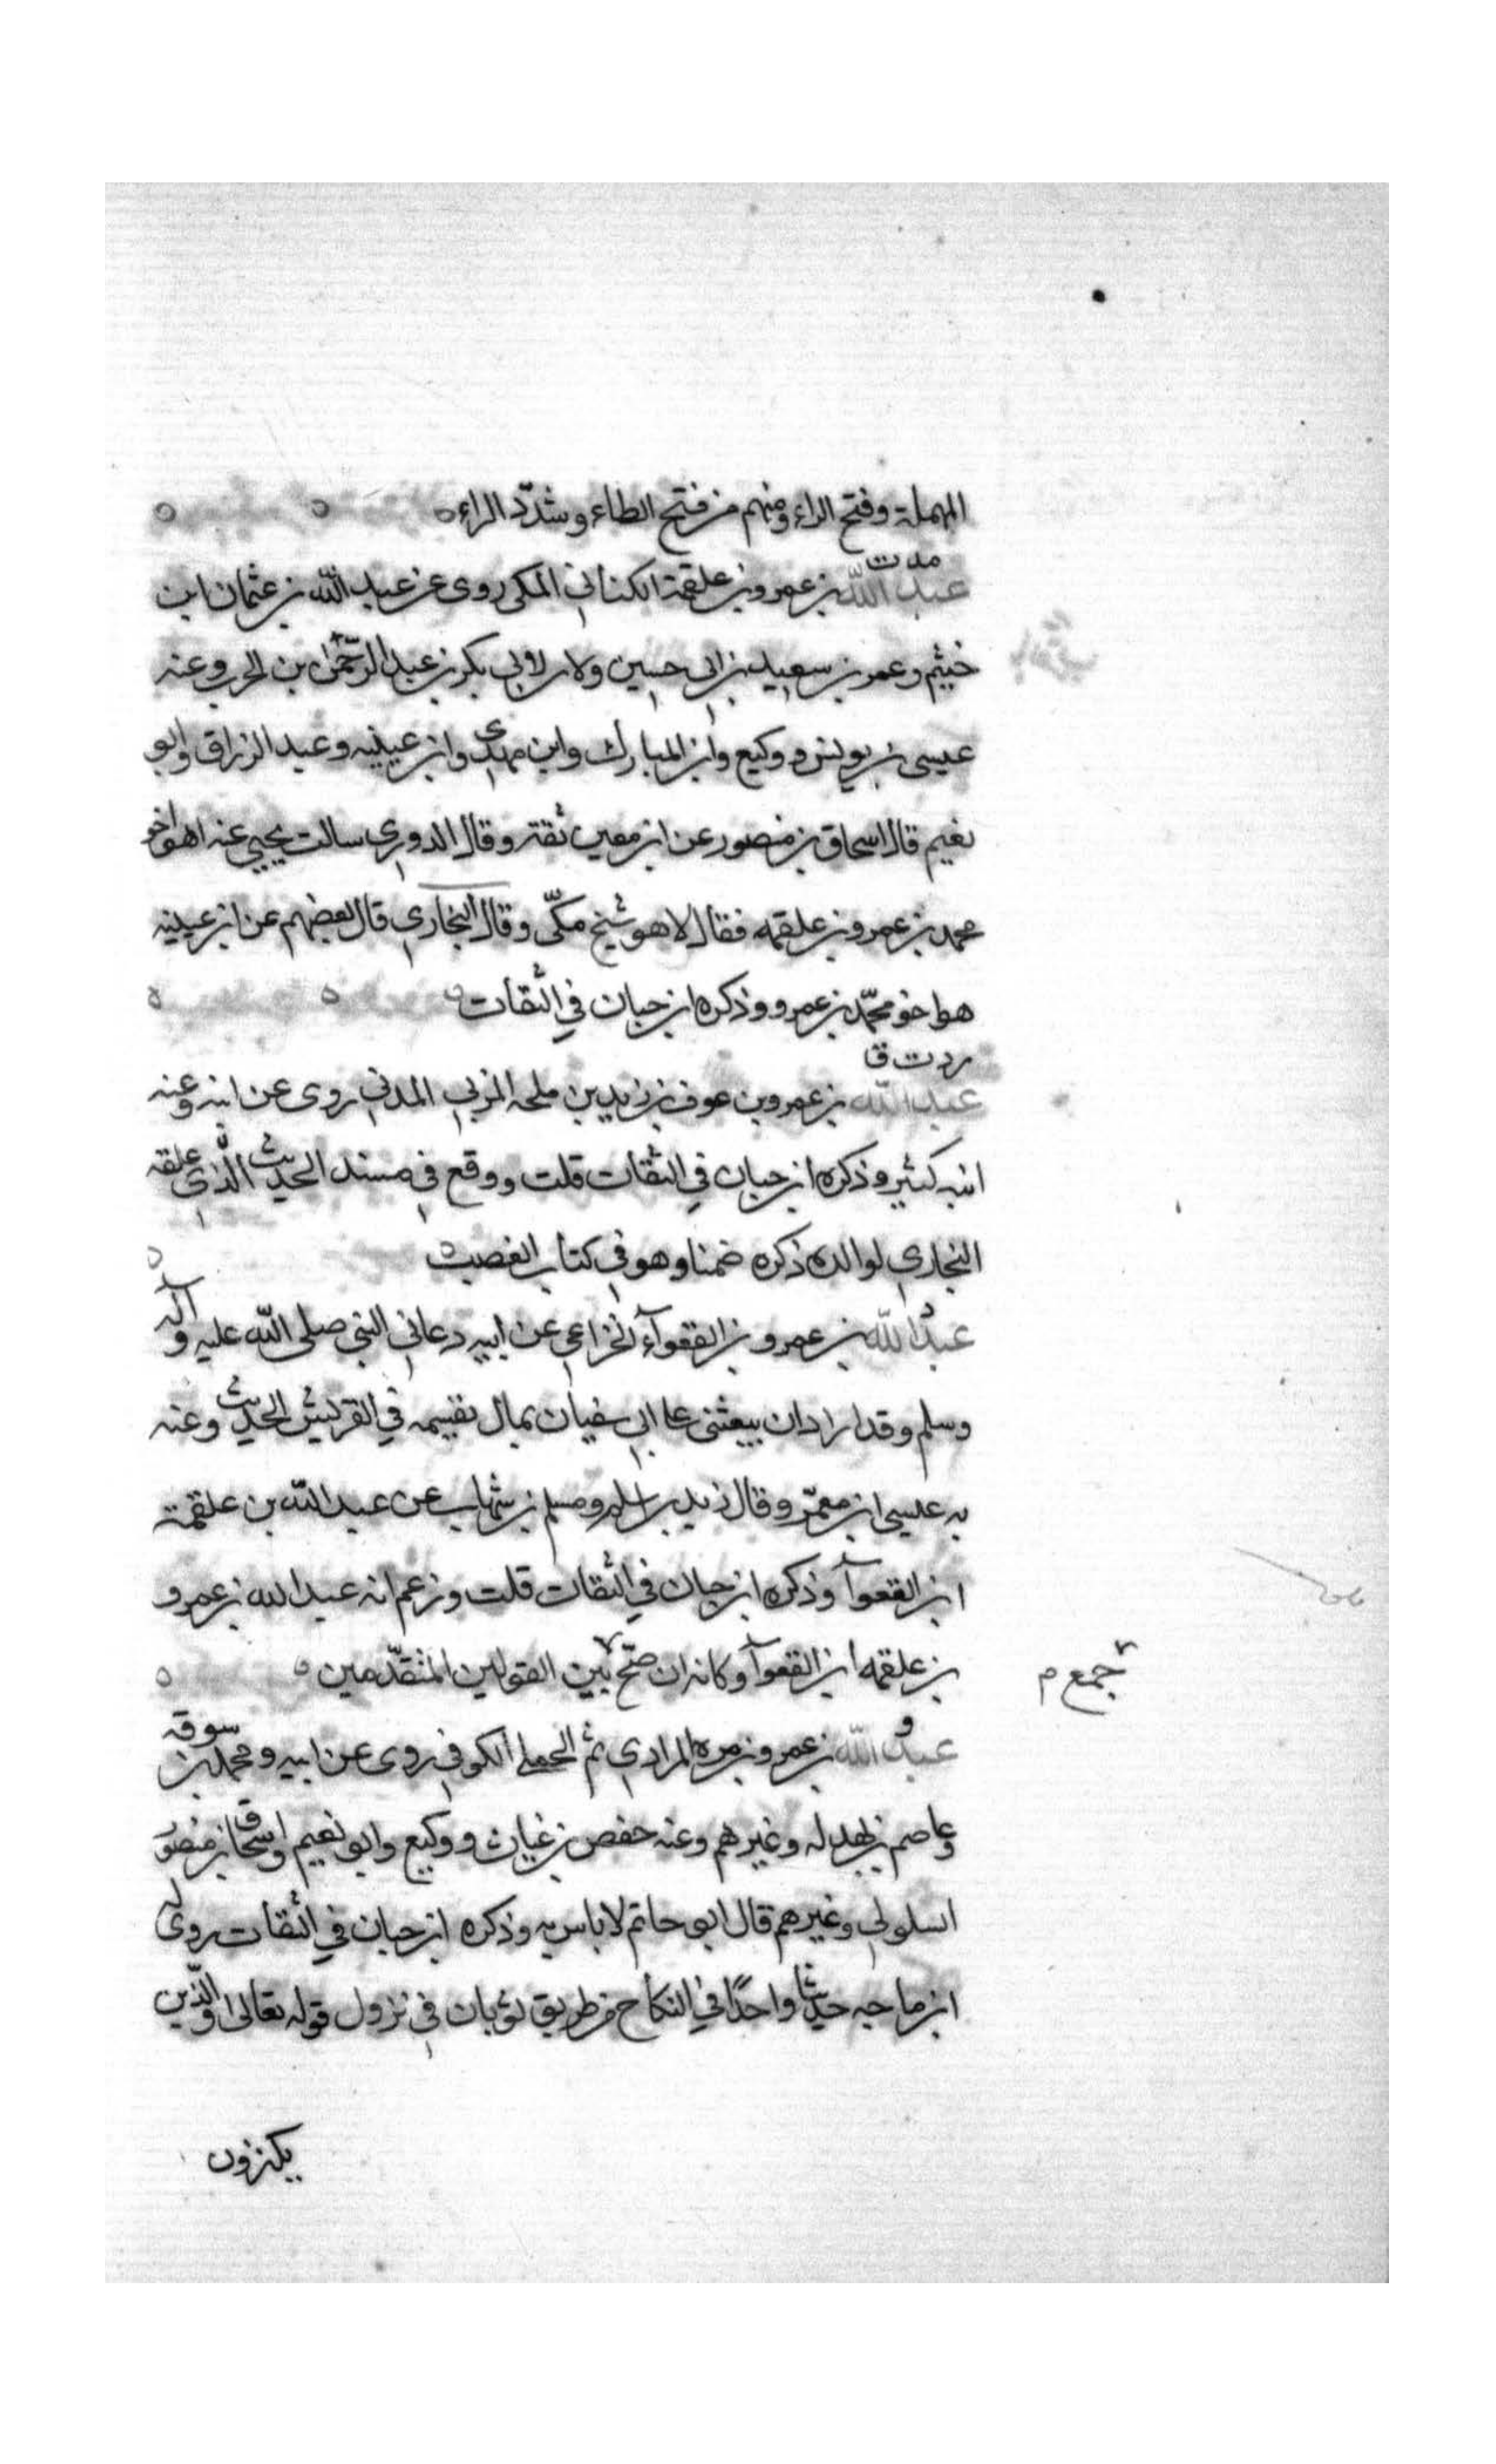 المهملة وفتح الراء ومنهم من فتح الطاء وشدّد الراء
مد ت
عبد الله بن عمرو بن علقمة الكناني المكي روى عن عبد الله بن عثمان ابن
خيثم وعمر بن سعيد بن ابي حسين ولابي بكر بن عبد الرحمن بن الحرث وعنه
عيسى بن يونس ووكيع وابن المبارك وابن مهدي وابن عيينه وعبد الرزاق وابو
نعيم قال اسحاق بن منصور عن ابن معين ثقة وقال الدوري سالت يحيى عنه اهو اخو
محمد بن عمرو بن علقمه فقال لا هو شيخ مكّي وقال البخاري قال بعضهم عن ابن عيينه
هو اخو محمّد بن عمرو وذكره ابن حبان في الثقات
ر د ت ق
عبد الله بن عمرو بن عوف بن زيد بن ملحه المزني المدني روى عن ابيه وعنه
ابنه كثير وذكره ابن حبان في الثقات قلت ووقع في مسند الحديث الّذي علقه
البخاري لوالده ذكره ضمنا وهو في كتاب الغصب
د
عبد الله بن عمرو بن الفغوآء الخزاعي عن ابيه دعاني النبي صلى الله عليه وآله
وسلم وقد اراد ان يبعثني عا ابي سفيان بمال نقسمه في القريش الحديث وعنه
به عيسى ابن معمّر وقال زيد بن اسلم ومسلم بن شهاب عن عبد الله بن علقمة
ابن الفغوآ وذكره ابن حبان في الثقات قلت وزعم انه عبد الله بن عمرو
بن علقمه ابن الفغوآ وكانه ان صحّ بين القولين المتقدّمين
جمع م
و
عبد الله بن عمرو بن مره المرادي ثم الجملي الكوفي روى عن ابيه ومحمد بن سوقه
وعاصم بن بهدله وغيرهم وعنه حفص بن غياث ووكيع وابو نعيم واسحاق بن منصور
السلولي وغيرهم قال ابو حاتم لا باس به وذكره ابن حبان في الثقات روى له
ابن ماجه حديثا واحدًا في النكاح من طريق ثوبان في نزول قوله تعالى والّذين
يكنزون